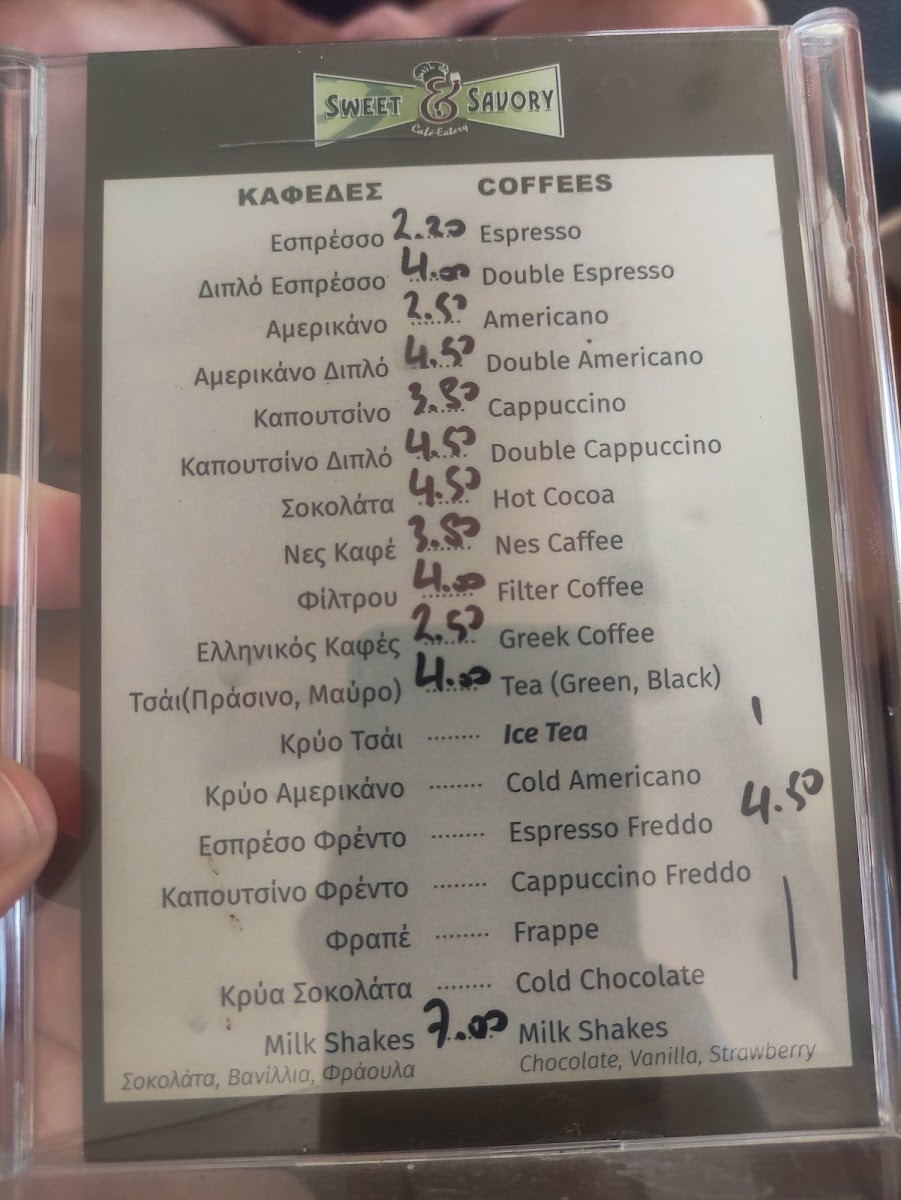 SWEET & SAVORY
Café-Eatery
ΚΑΦΕΔΕΣ COFFEES
Εσπρέσσο 2.20 Espresso
Διπλό Εσπρέσσο 4.00 Double Espresso
Αμερικάνο 2.50 Americano
Αμερικάνο Διπλό 4.50 Double Americano
Καπουτσίνο 3.50 Cappuccino
Καπουτσίνο Διπλό 4.50 Double Cappuccino
Σοκολάτα 4.50 Hot Cocoa
Νες Καφέ 3.50 Nes Caffee
Φίλτρου 4.00 Filter Coffee
Ελληνικός Καφές 2.50 Greek Coffee
Τσάι(Πράσινο, Μαύρο) 4.00 Tea (Green, Black)
Κρύο Τσάι ........ Ice Tea
Κρύο Αμερικάνο ........ Cold Americano
4.50
Εσπρέσο Φρέντο ........ Espresso Freddo
Καπουτσίνο Φρέντο ........ Cappuccino Freddo
Φραπέ ........ Frappe
Κρύα Σοκολάτα ........ Cold Chocolate
Milk Shakes 7.00 Milk Shakes
Σοκολάτα, Βανίλλια, Φράουλα Chocolate, Vanilla, Strawberry